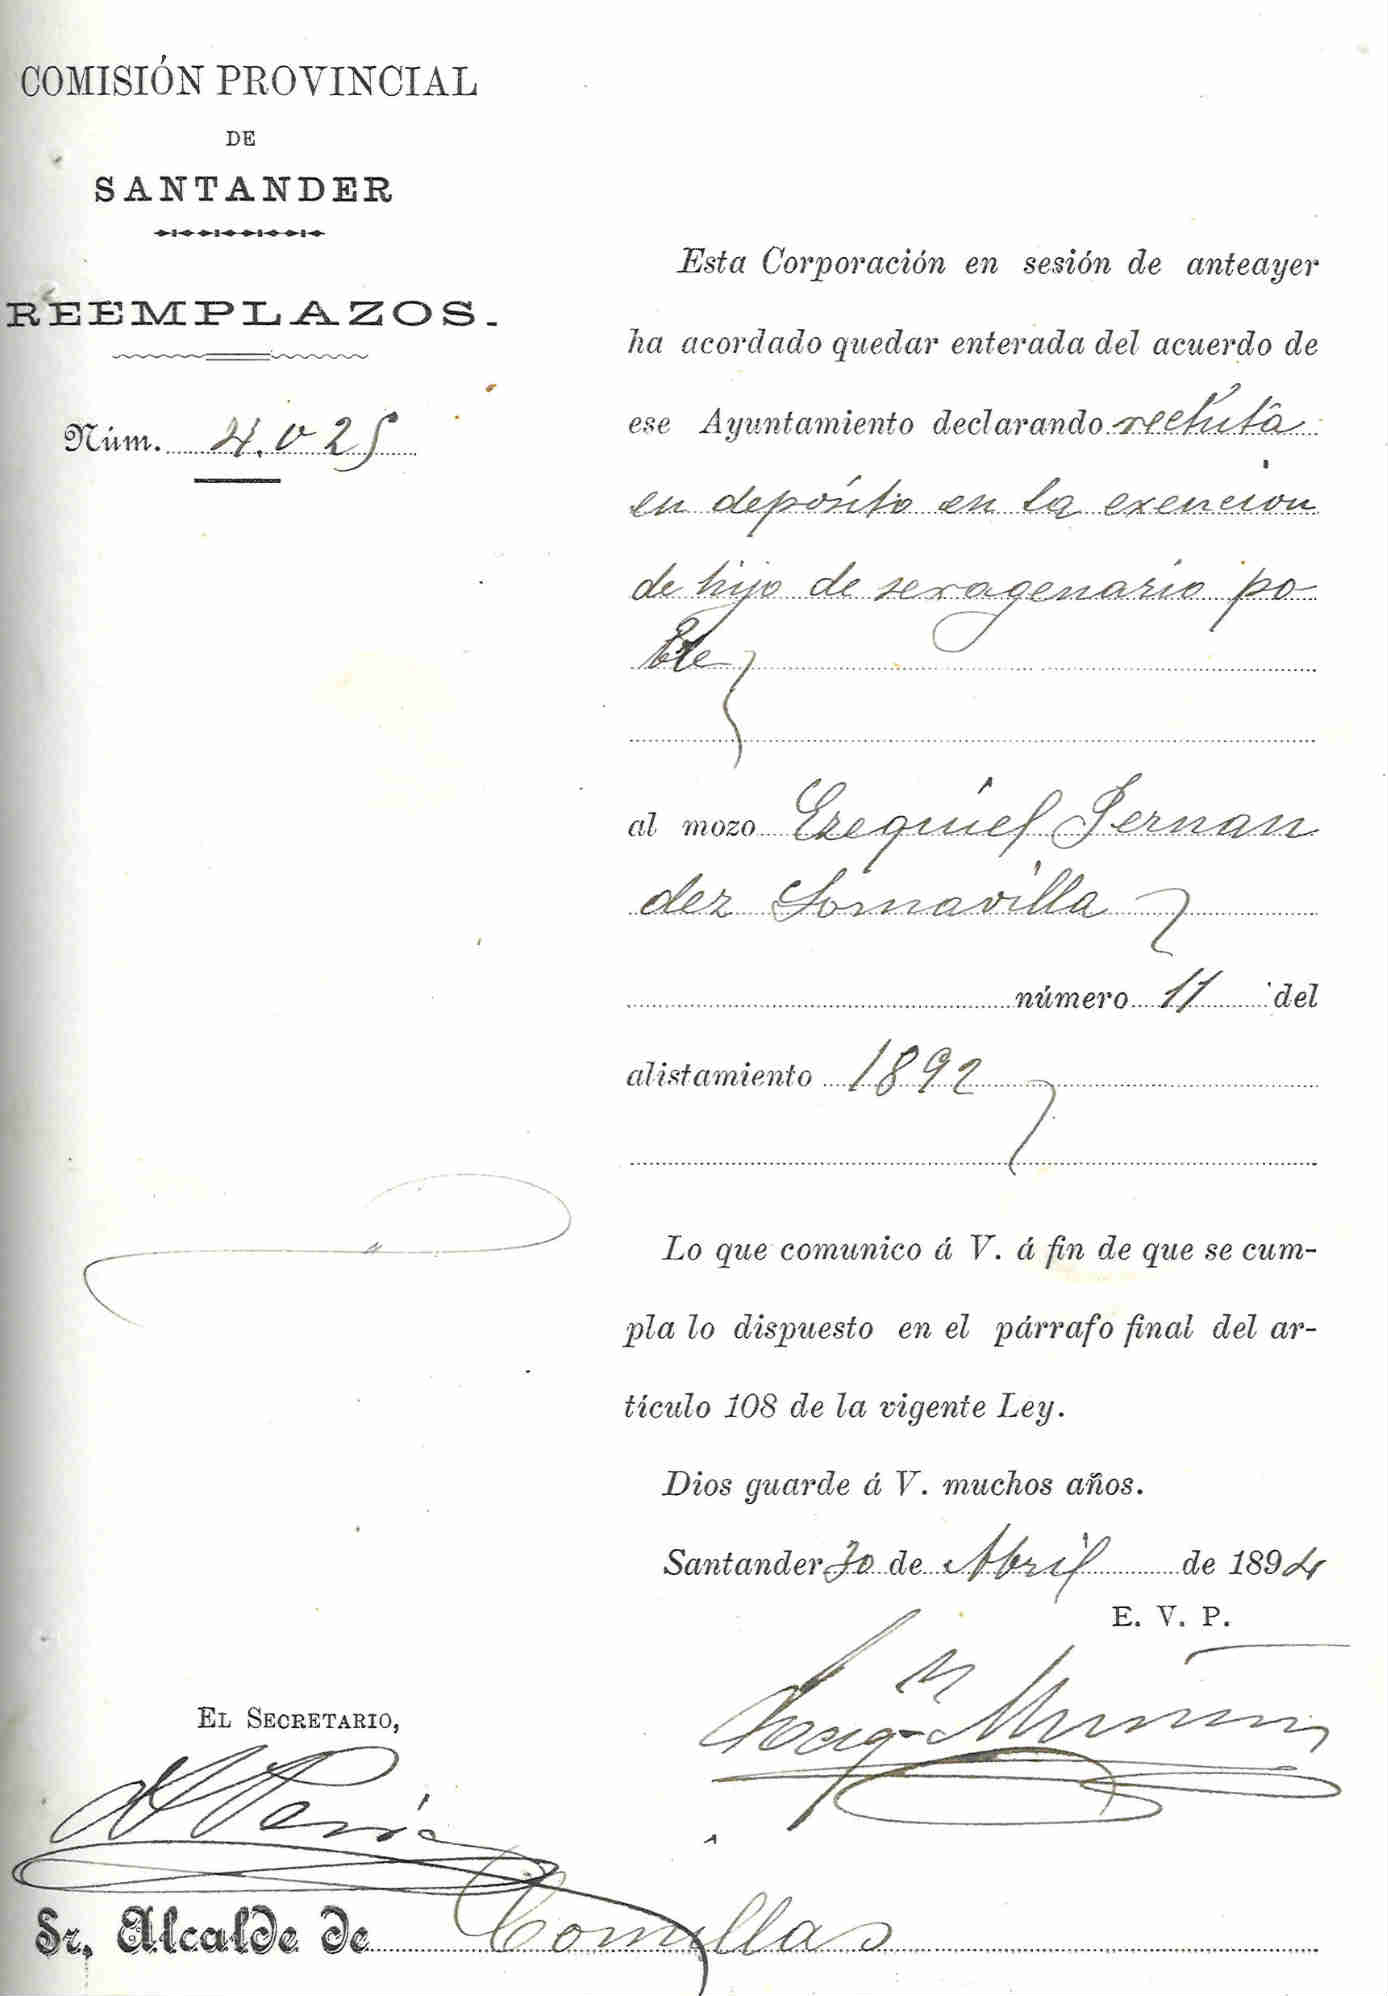 COMISIÓN PROVINCIAL
DE
SANTANDER
REEMPLAZOS.
Núm. 4.025
Esta Corporación en sesión de anteayer
ha acordado quedar enterada del acuerdo de
ese Ayuntamiento declarando recluta
en depósito en la exencion
de hijo de sexagenario po-
bre
al mozo Ezequiel Fernan
dez Somavilla
número 11 del
alistamiento 1892
Lo que comunico á V. á fin de que se cum-
pla lo dispuesto en el párrafo final del ar-
tículo 108 de la vigente Ley.
Dios guarde á V. muchos años.
Santander 30 de Abril de 1894
E. V. P.
EL SECRETARIO,
Sr. Alcalde de Comillas